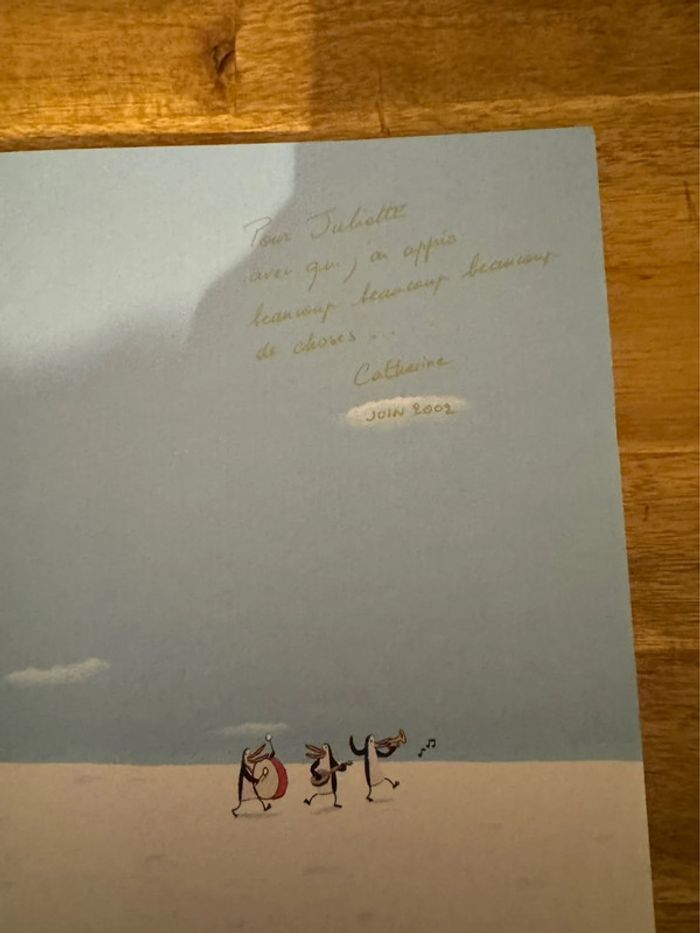 Pour Juliette
avec qui j'ai appris
beaucoup beaucoup beaucoup
de choses...
Catherine
JUIN 2002